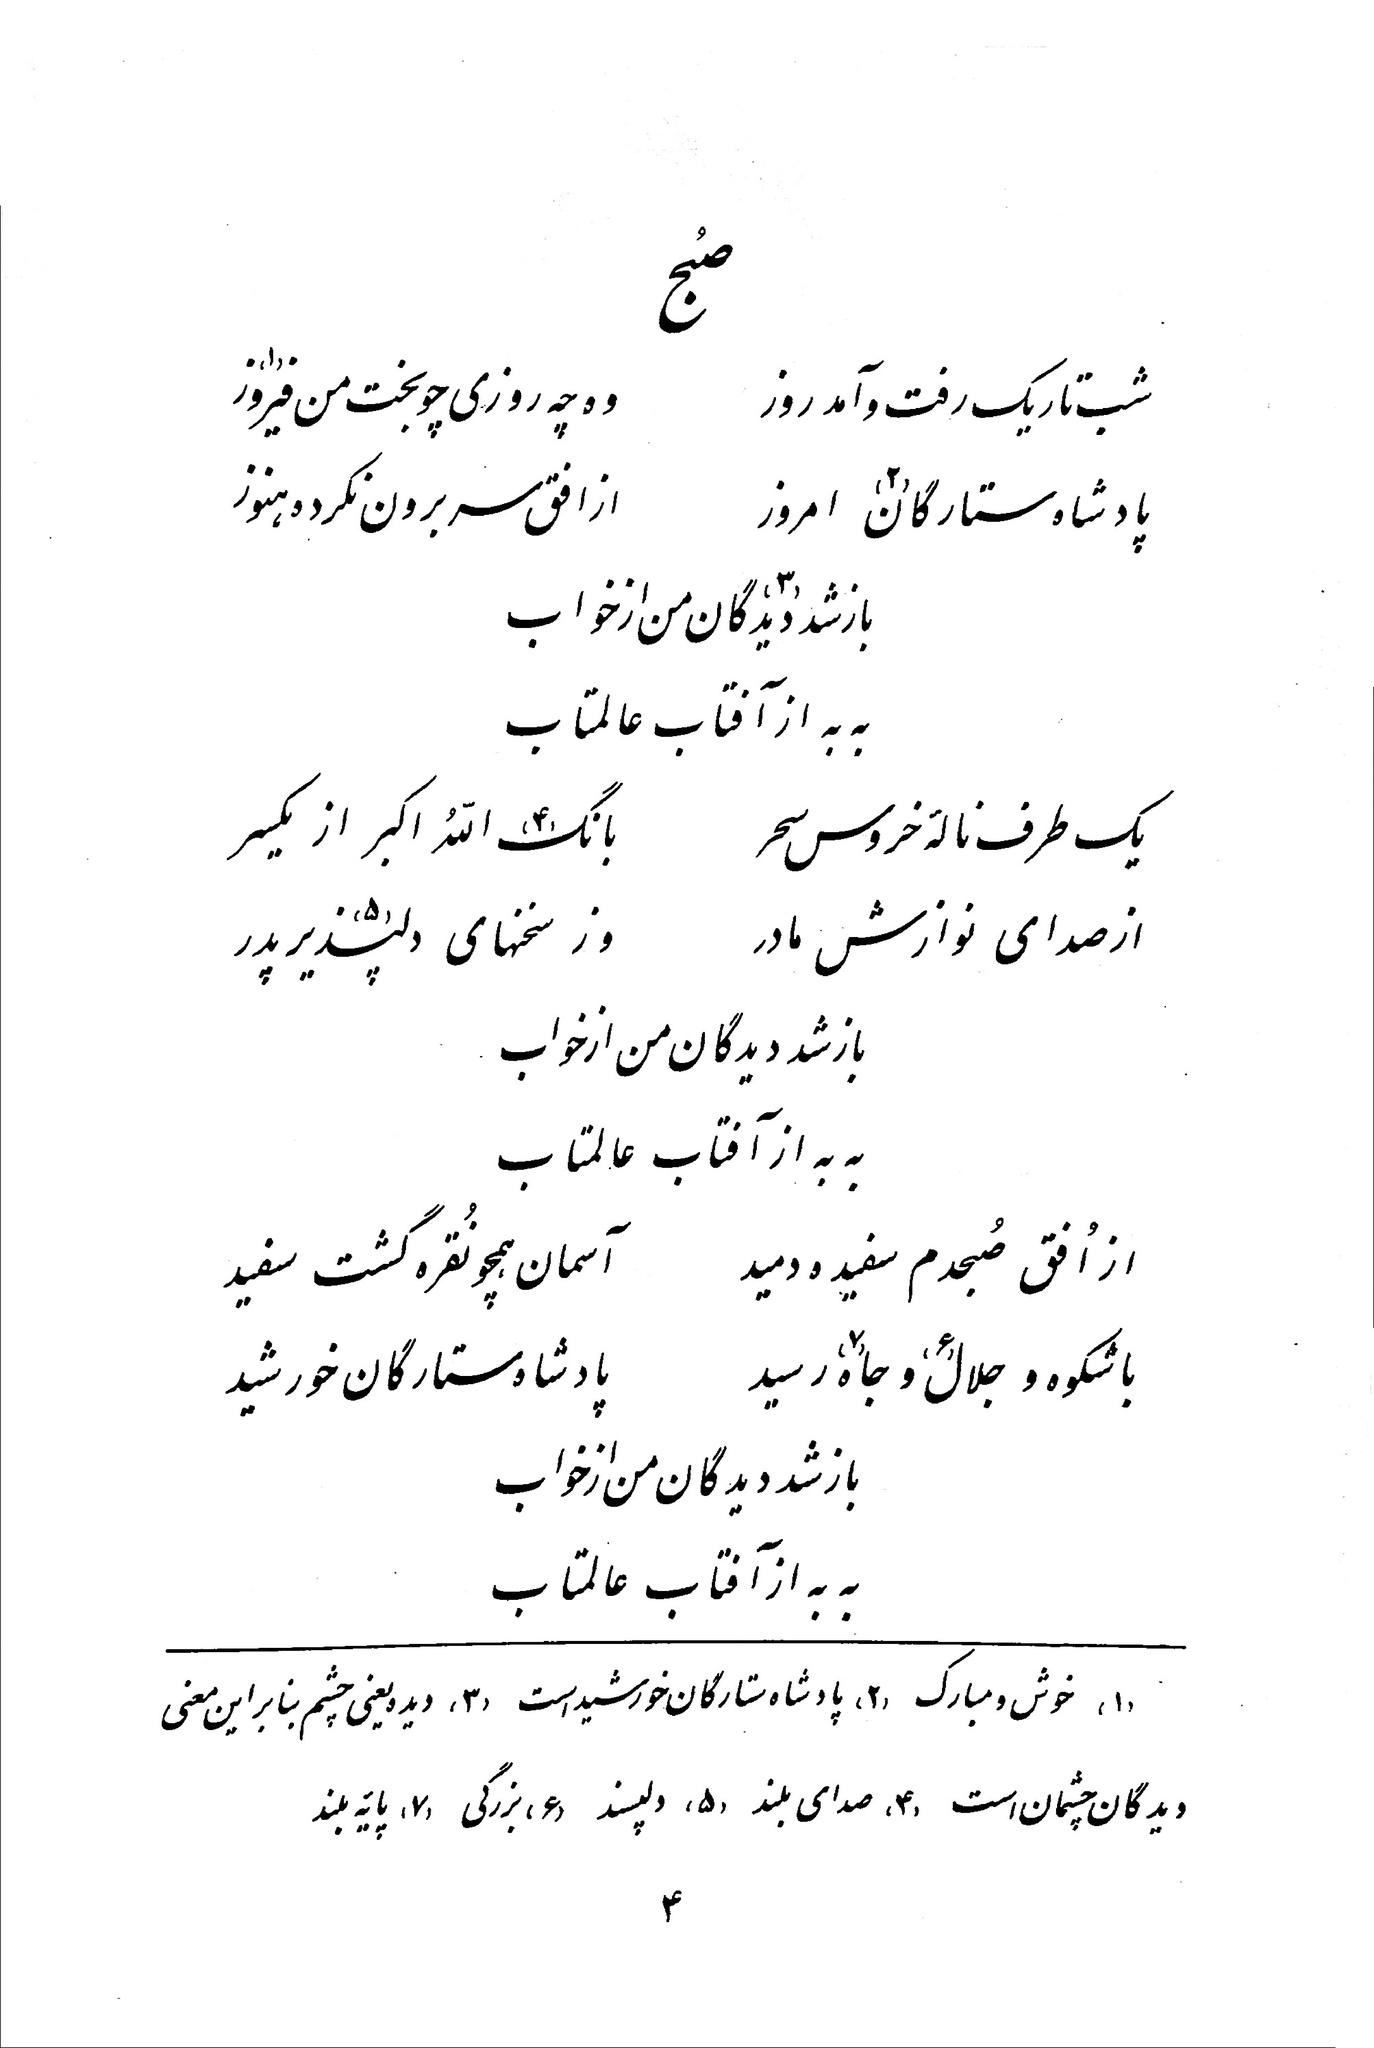 صُبح
شب تاریک رفت و آمد روز وه چه روزی چو بخت من فیروز(۱)
پادشاه ستارگان(۲) امروز از افق سر برون نکرده هنوز
باز شد دیدگان(۳) من از خواب
به به از آفتاب عالمتاب
یک طرف نالهٔ خروس سحر بانگ(۴) اللهُ اکبر از یکسر
از صدای نوازش مادر وز سخنهای دلپذیر(۵) پدر
باز شد دیدگان من از خواب
به به از آفتاب عالمتاب
از اُفق صُبحدم سفیده دمید آسمان همچو نُقره گشت سفید
با شکوه و جلال(۶) و جاه(۷) رسید پادشاه ستارگان خورشید
باز شد دیدگان من از خواب
به به از آفتاب عالمتاب
(۱) خوش و مبارک (۲) پادشاه ستارگان خورشید است (۳) دیده یعنی چشم بنابراین معنی
دیدگان چشمان است (۴) صدای بلند (۵) دلپسند (۶) بزرگی (۷) پایهٔ بلند
۴